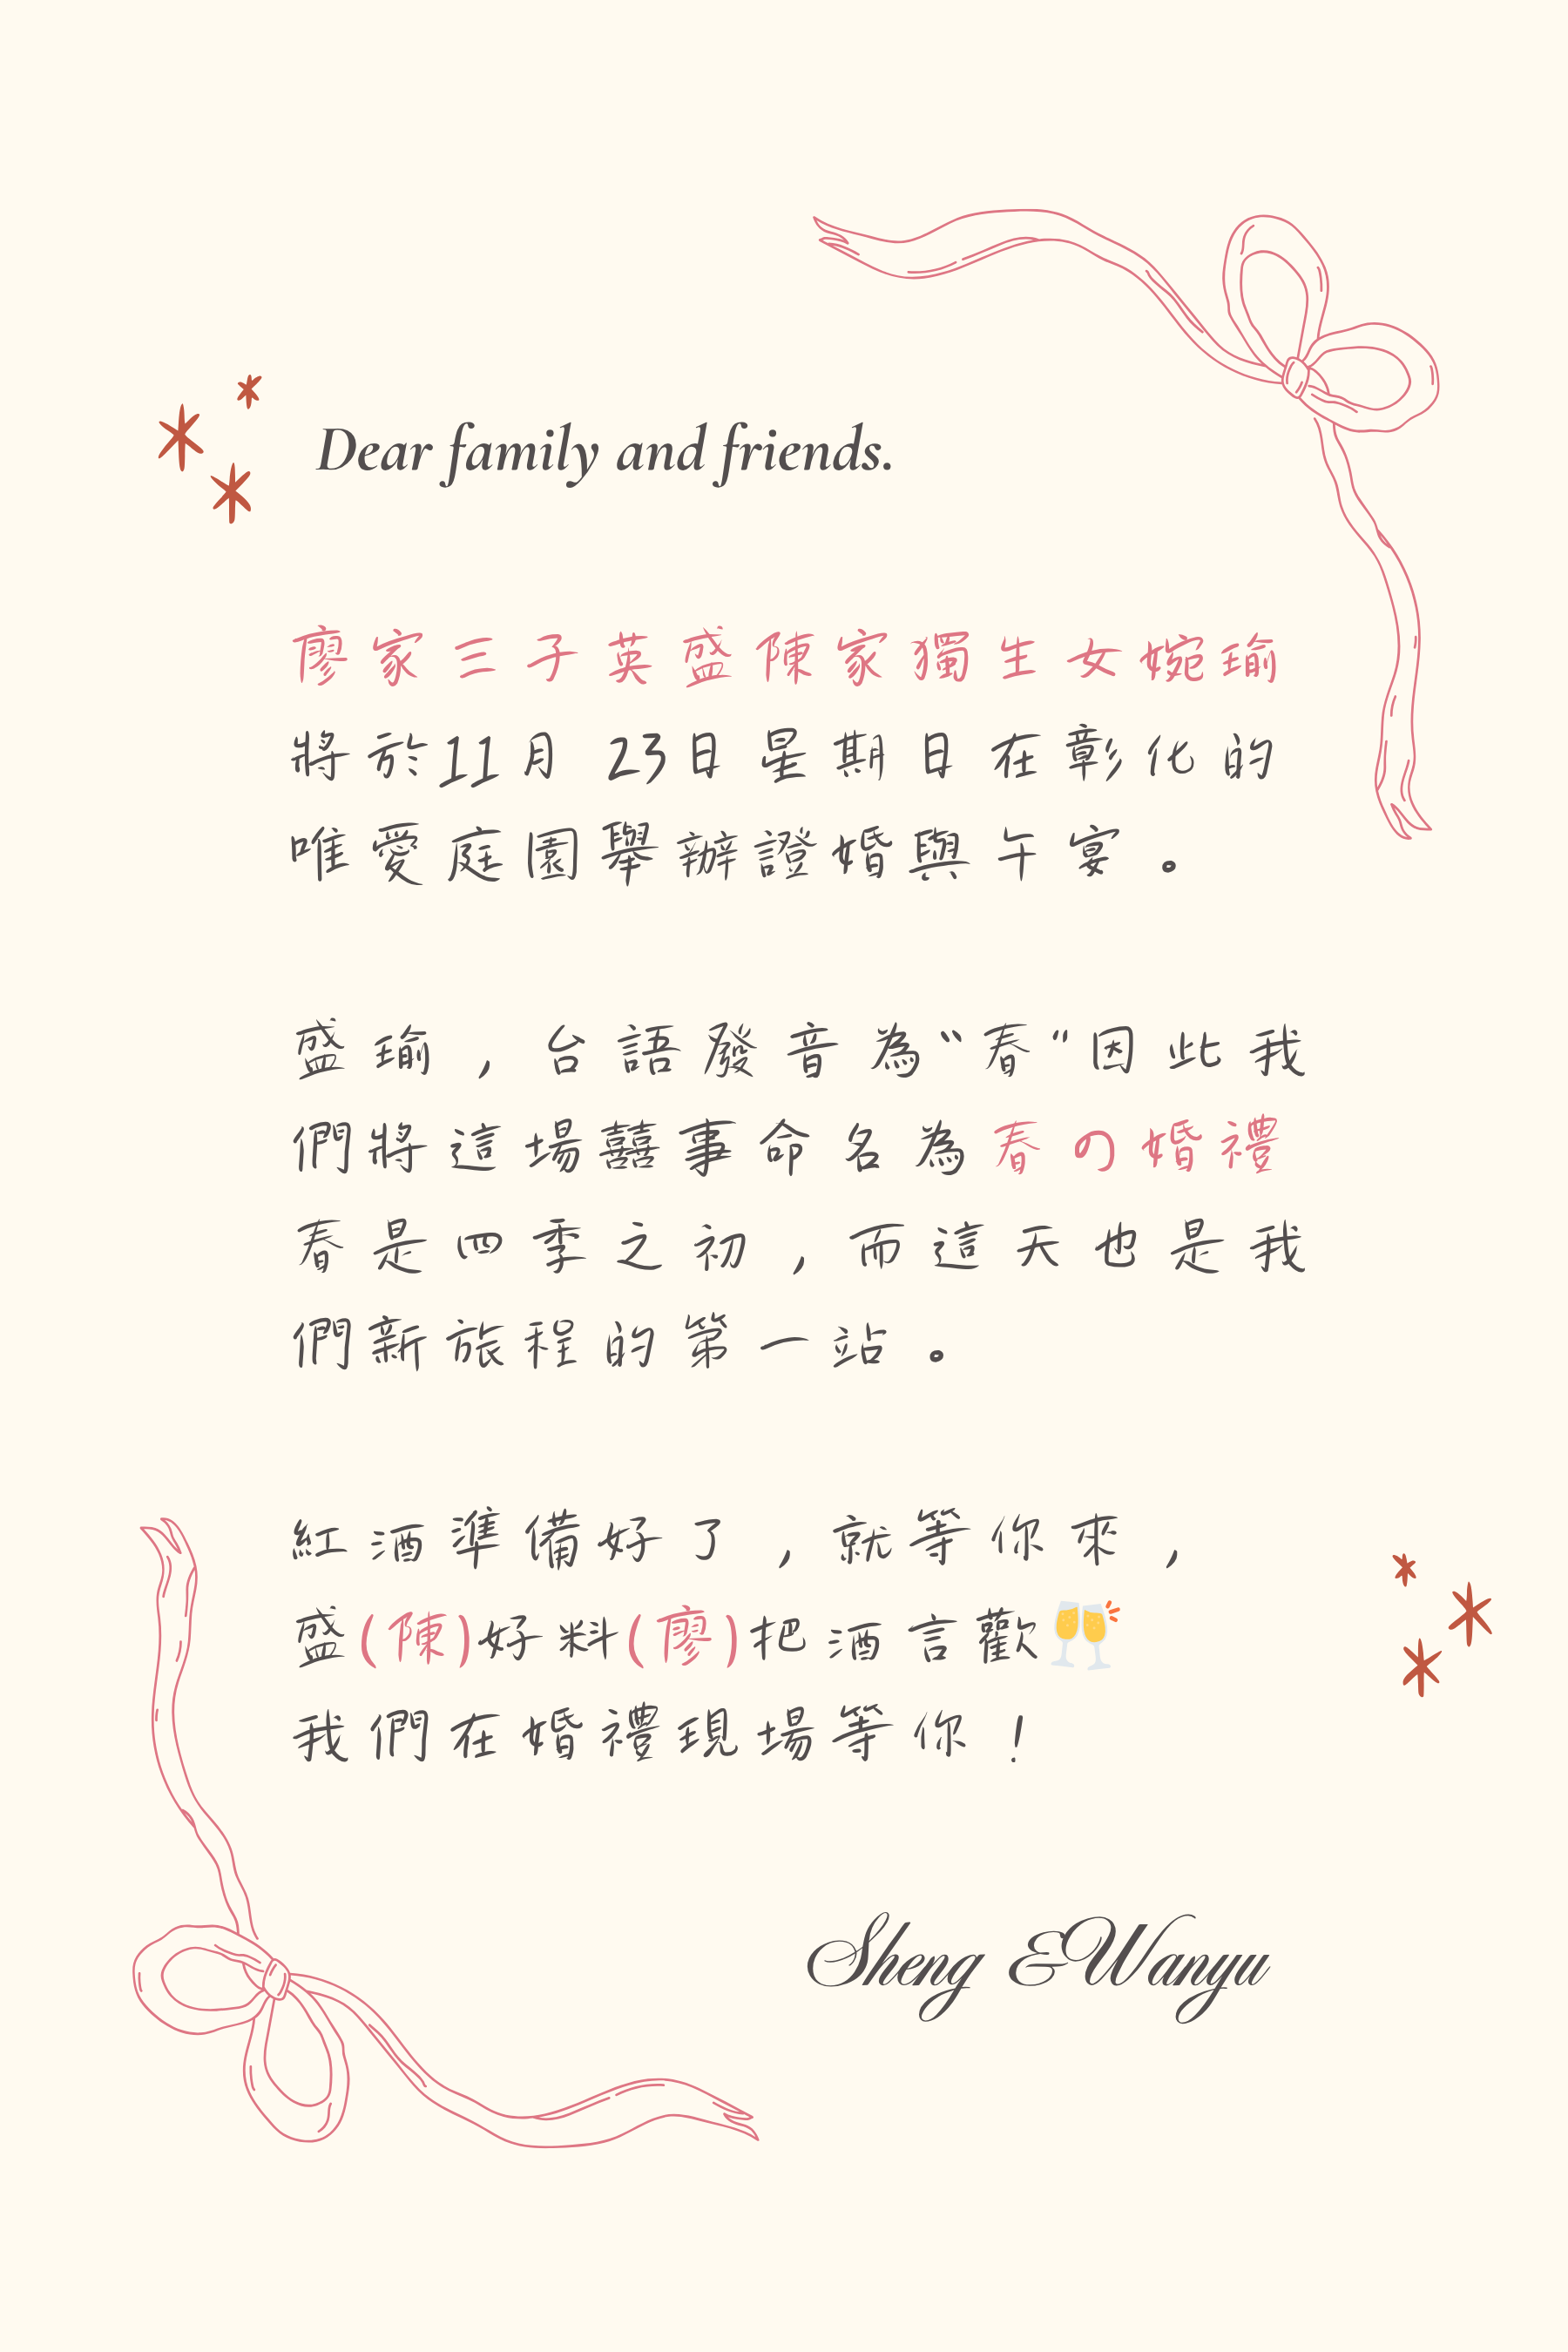 Dear family and friends.
廖家三子英盛陳家獨生女婉瑜
將於11月23日星期日在彰化的
唯愛庭園舉辦證婚與午宴。
盛瑜，台語發音為“春”因此我
們將這場囍事命名為春の婚禮
春是四季之初，而這天也是我
們新旅程的第一站。
紅酒準備好了，就等你來，
盛(陳)好料(廖)把酒言歡🥂
我們在婚禮現場等你！
Sheng &Wanyu